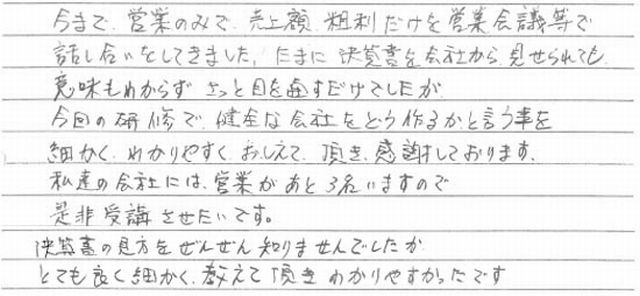 今まで、営業のみで、売上額、粗利だけを営業会議等で
話し合いをしてきました。たまに決算書を会社から見せられても
意味もわからずさっと目を通すだけでしたが
今回の研修で、健全な会社をどう作るかと言う事を
細かく、わかりやすく、おしえて、頂き、感謝しております。
私達の会社には、営業があと3名いますので
是非受講させたいです。
決算書の見方をぜんぜん知りませんでしたが
とても良く細かく、教えて頂きわかりやすかったです